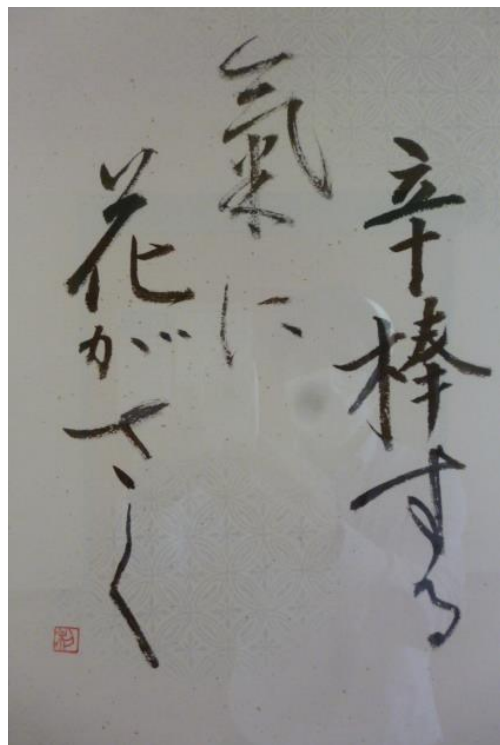 辛棒する
氣に
花がさく